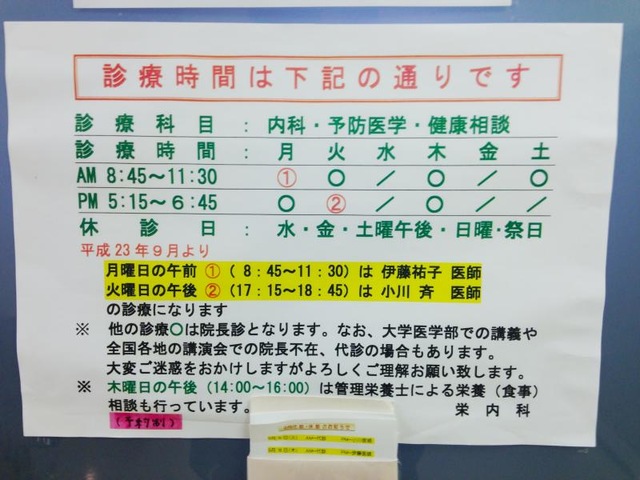 診療時間は下記の通りです
診療科目 : 内科・予防医学・健康相談
診療時間: 月 火 水 木 金 土
AM 8:45～11:30 ① ○ ／ ○ ／ ○
PM 5:15～6:45 ○ ② ／ ○ ／ ／
休診日 : 水・金・土曜午後・日曜・祭日
平成23年9月より
月曜日の午前 ①（ 8：45～11：30）は 伊藤祐子 医師
火曜日の午後 ②（17：15～18：45）は 小川 斉 医師
の診療になります
※ 他の診療○は院長診となります。なお、大学医学部での講義や
全国各地の講演会での院長不在、代診の場合もあります。
大変ご迷惑をおかけしますがよろしくご理解お願い致します。
※ 木曜日の午後（14:00～16:00）は管理栄養士による栄養（食事）
相談も行っています。 栄内科
(予約制)